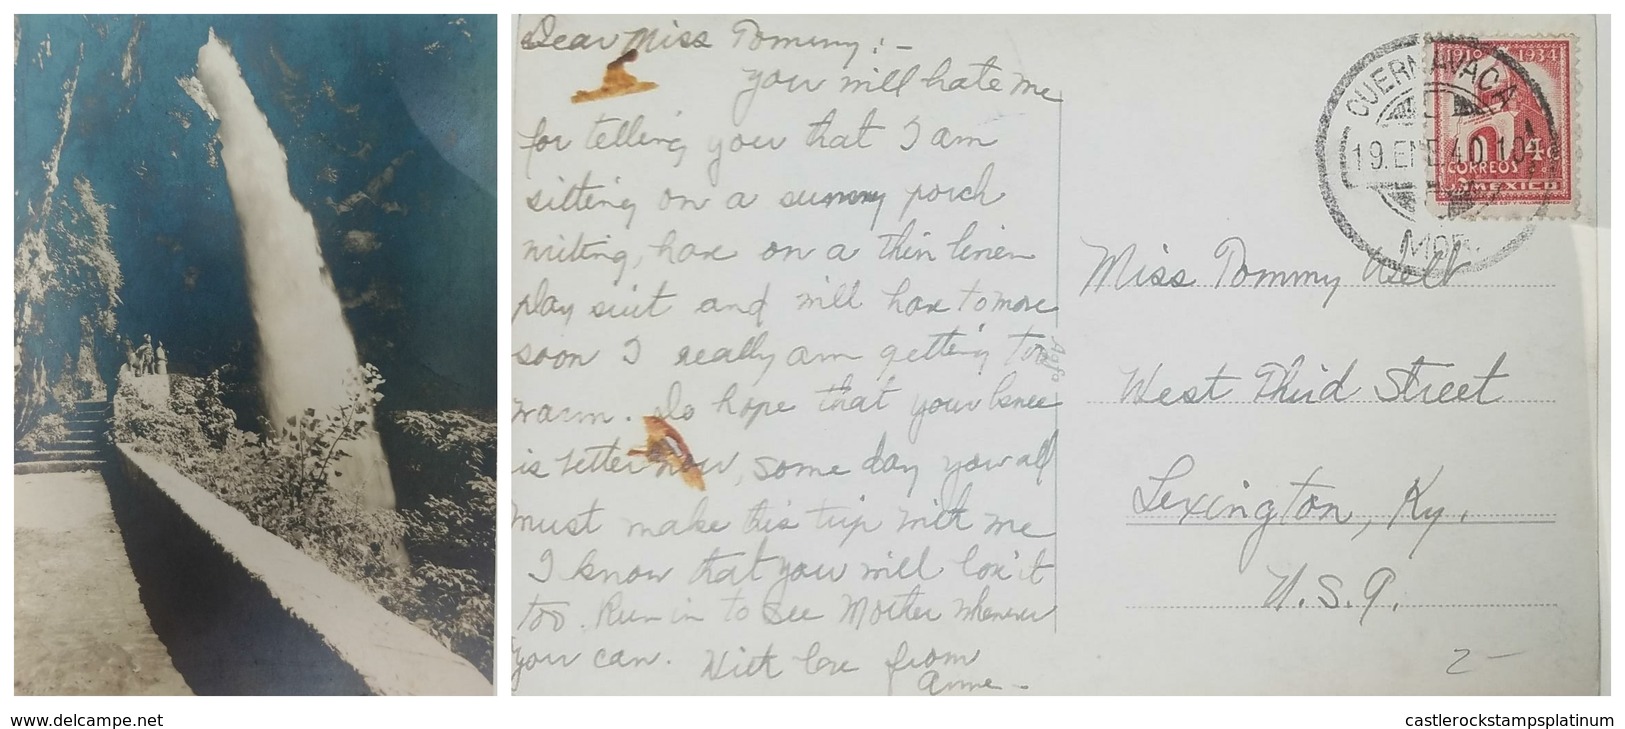 Dear Miss Tommy: -
you will hate me
for telling you that I am
sitting on a sunny porch
writing, have on a thin linen
play suit and will have to move
soon I really am getting too
warm. Do hope that your knee
is better now, some day you all
must make this trip with me
I know that you will love it
too. Run in to see Mother whenever
you can. With love from
Anne -
Agfa
1910 1934
CORREOS 4c
MEXICO
CUERNAVACA
19.ENE.40.10
MOR.
Miss Tommy
West Third Street
Lexington, Ky.
U.S.A.
2 -
www.delcampe.net
castlerockstampsplatinum